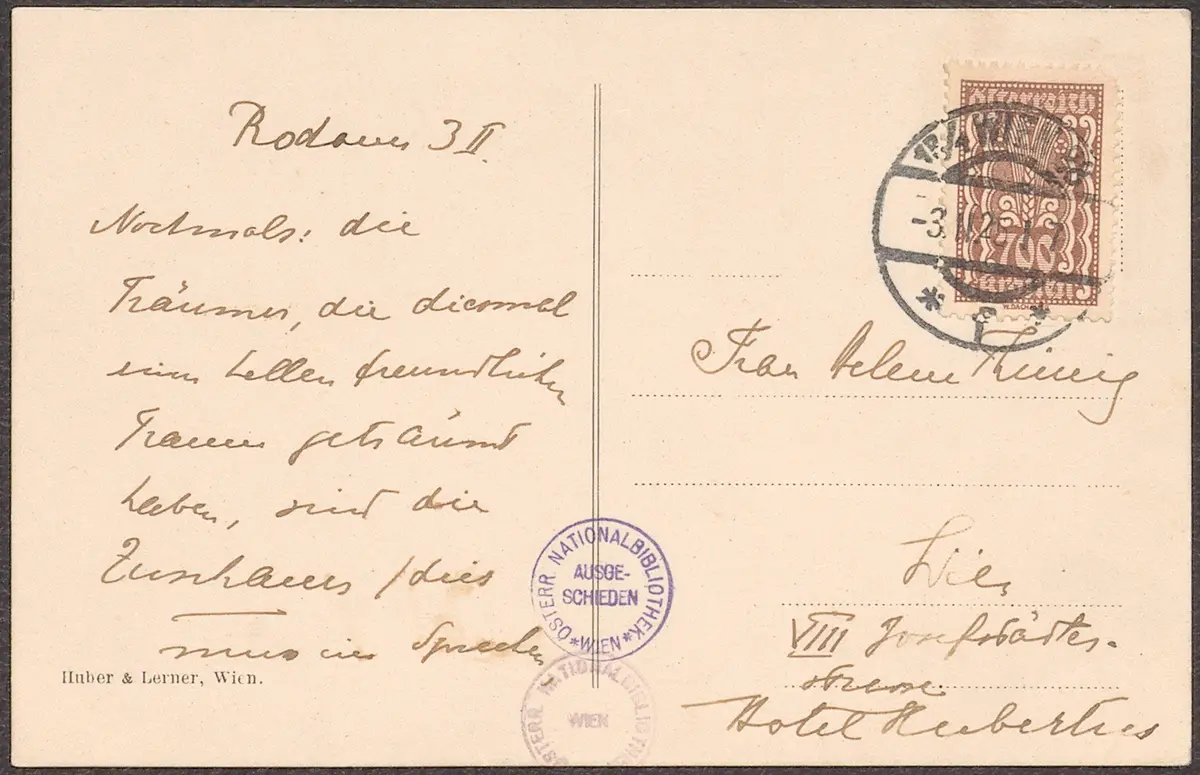 Rodaun 3 II.
Nochmals: die
Träumer, die diesmal
einen hellen freundlichen
Traum geträumt
haben, sind die
Zuschauer / dies
muss im Sprechen
Huber & Lerner, Wien.
Österreich
WIEN
-3.II.2
700
Frau Helene Thimig
Wien
VIII Josefstädter-
strasse
Hotel Hubertus
ÖSTERR NATIONALBIBLIOTHEK
AUSGE-
SCHIEDEN
*WIEN*
ÖSTERR NATIONALBIBLIOTHE
WIEN